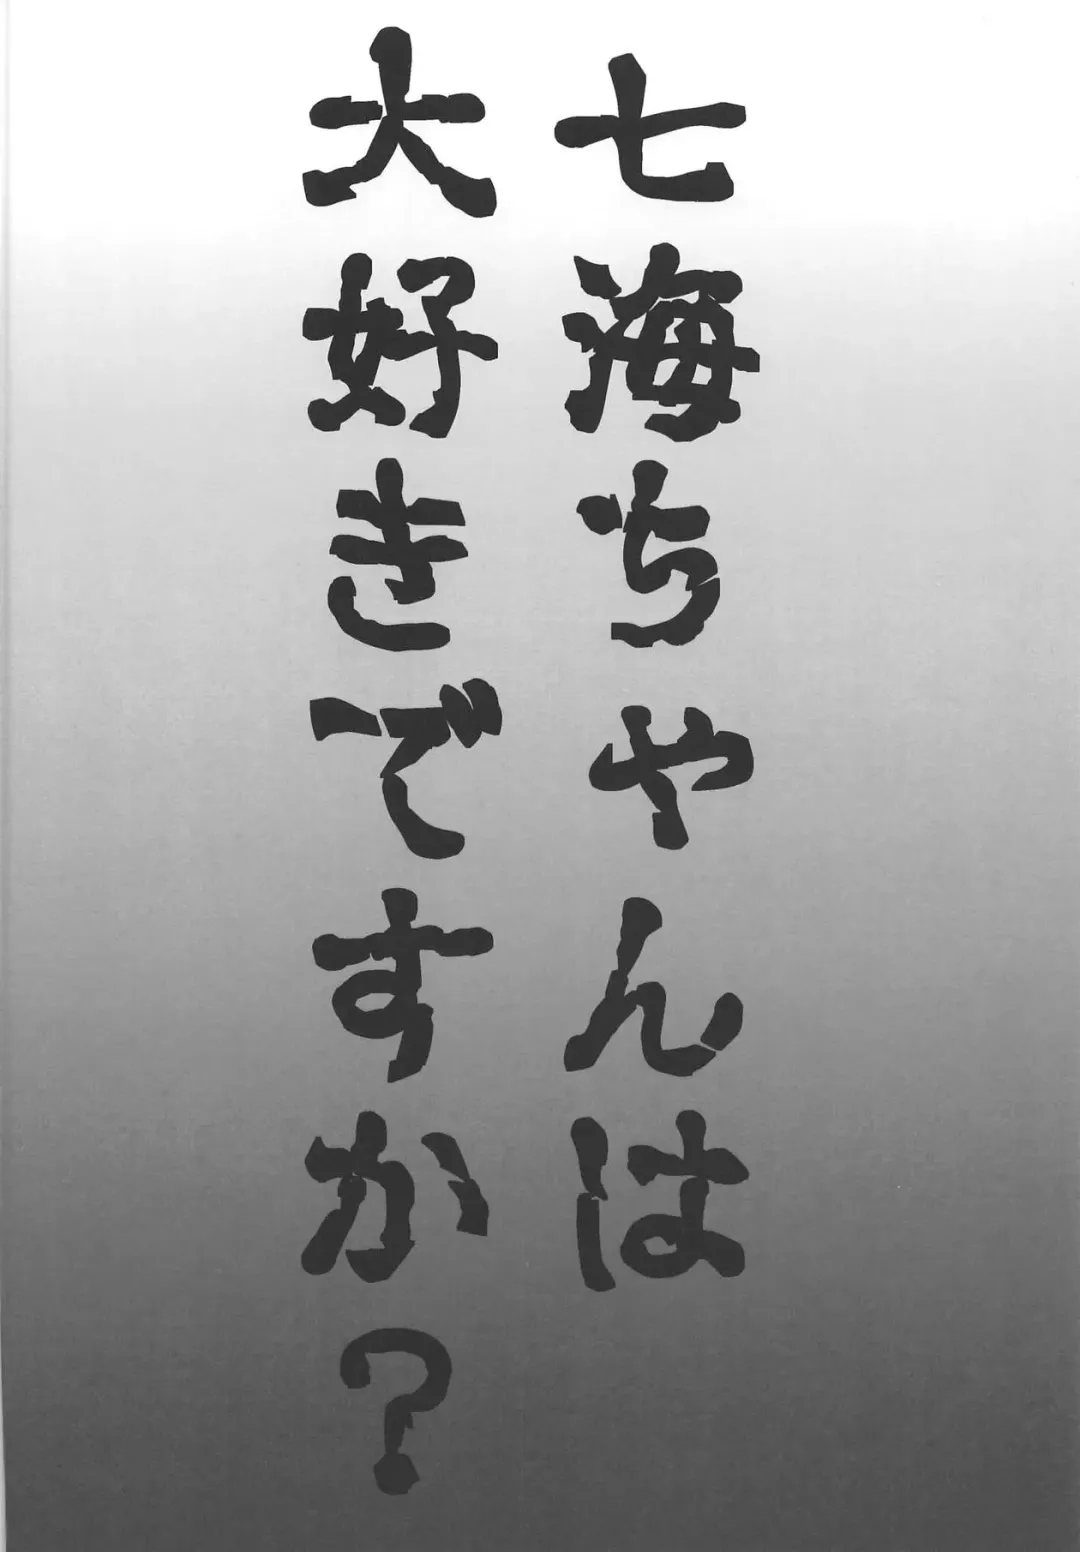 七海ちゃんは
大好きですか？